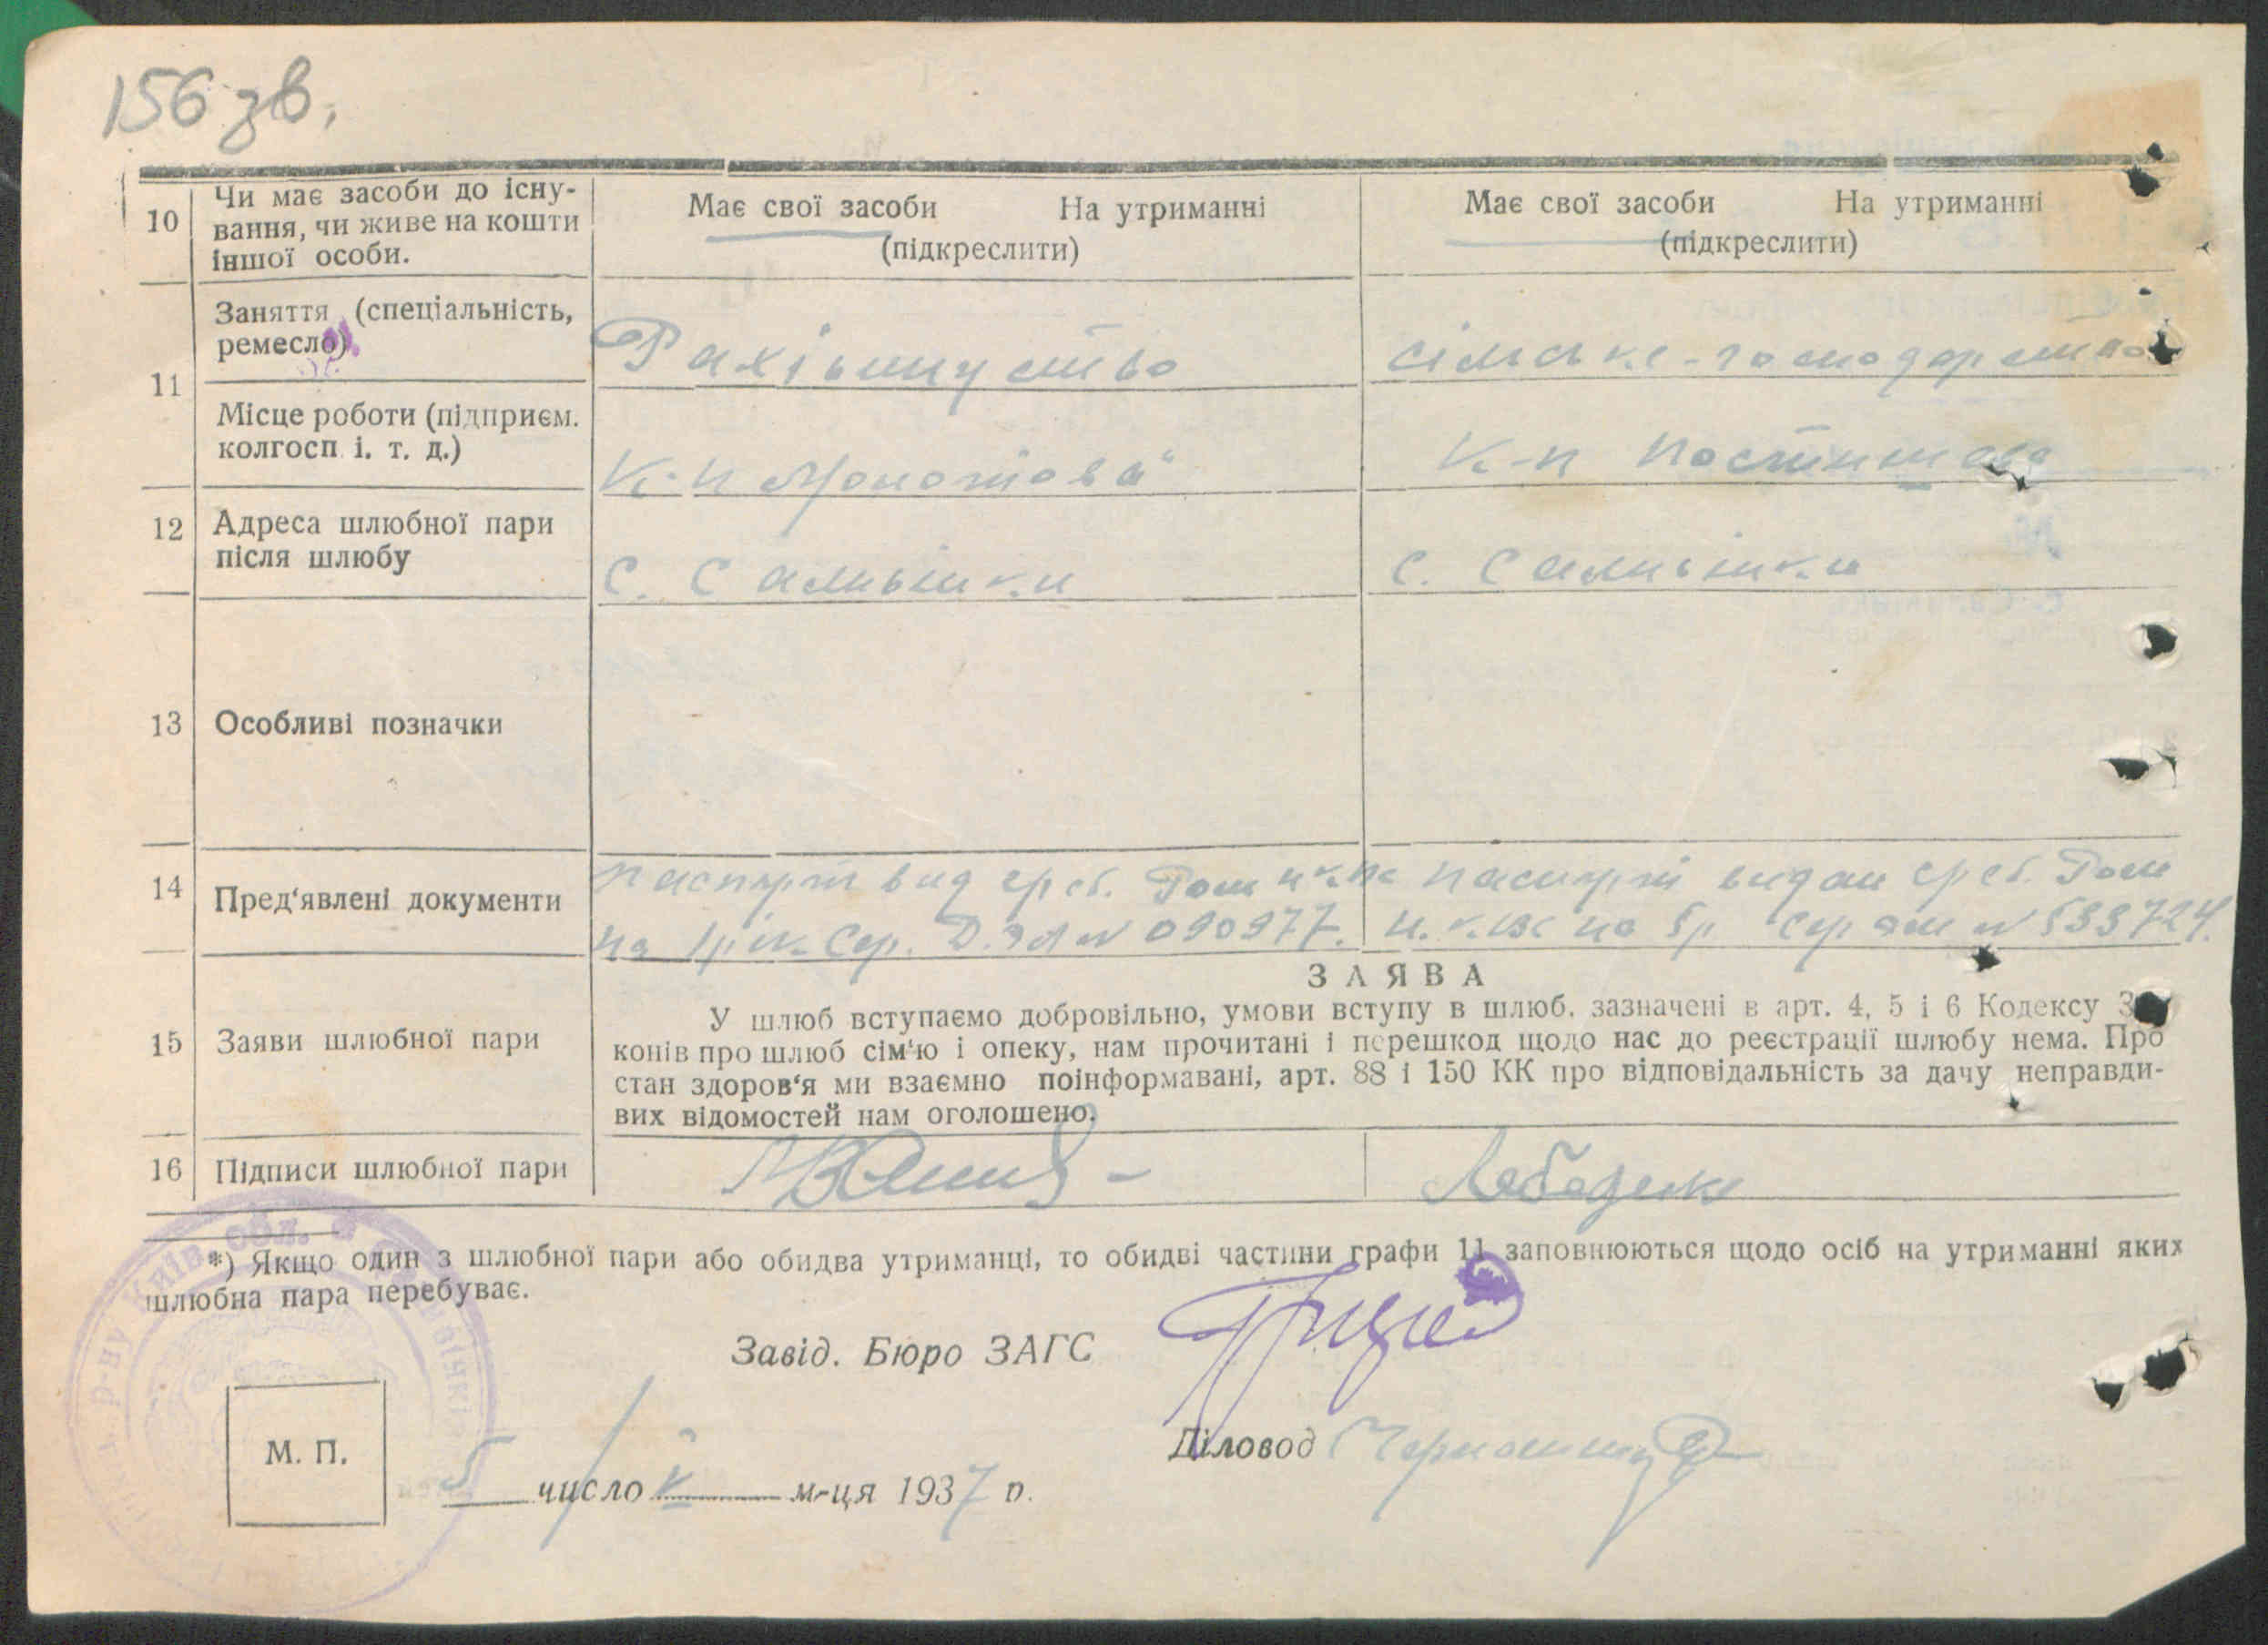 156 зв.
10 Чи має засоби до існу-
вання, чи живе на кошти
іншої особи.
Має свої засоби На утриманні
(підкреслити)
Має свої засоби На утриманні
(підкреслити)
11 Заняття (спеціальність,
ремесло)
Рахівництво
сільське-господарство
Місце роботи (підприєм.
колгосп і. т. д.)
К-п Молотова"
К-п Постишева
12 Адреса шлюбної пари
після шлюбу
С. Сальники
С. Сальники
13 Особливі позначки
14 Пред'явлені документи
паспорт вид
на Сер. № 090977.
паспорт видан
на 5р сер № 533724.
15 Заяви шлюбної пари
ЗАЯВА
У шлюб вступаємо добровільно, умови вступу в шлюб, зазначені в арт. 4, 5 і 6 Кодексу За
конів про шлюб сім'ю і опеку, нам прочитані і перешкод щодо нас до реєстрації шлюбу нема. Про
стан здоров'я ми взаємно поінформавані, арт. 88 і 150 КК про відповідальність за дачу неправди-
вих відомостей нам оголошено.
16 Підписи шлюбної пари
*) Якщо один з шлюбної пари або обидва утриманці, то обидві частини графи 11 заповнюються щодо осіб на утриманні яких
шлюбна пара перебуває.
Завід. Бюро ЗАГС
Діловод
М. П.
5 число V м-ця 1937 р.
р-ну Київ. обл.